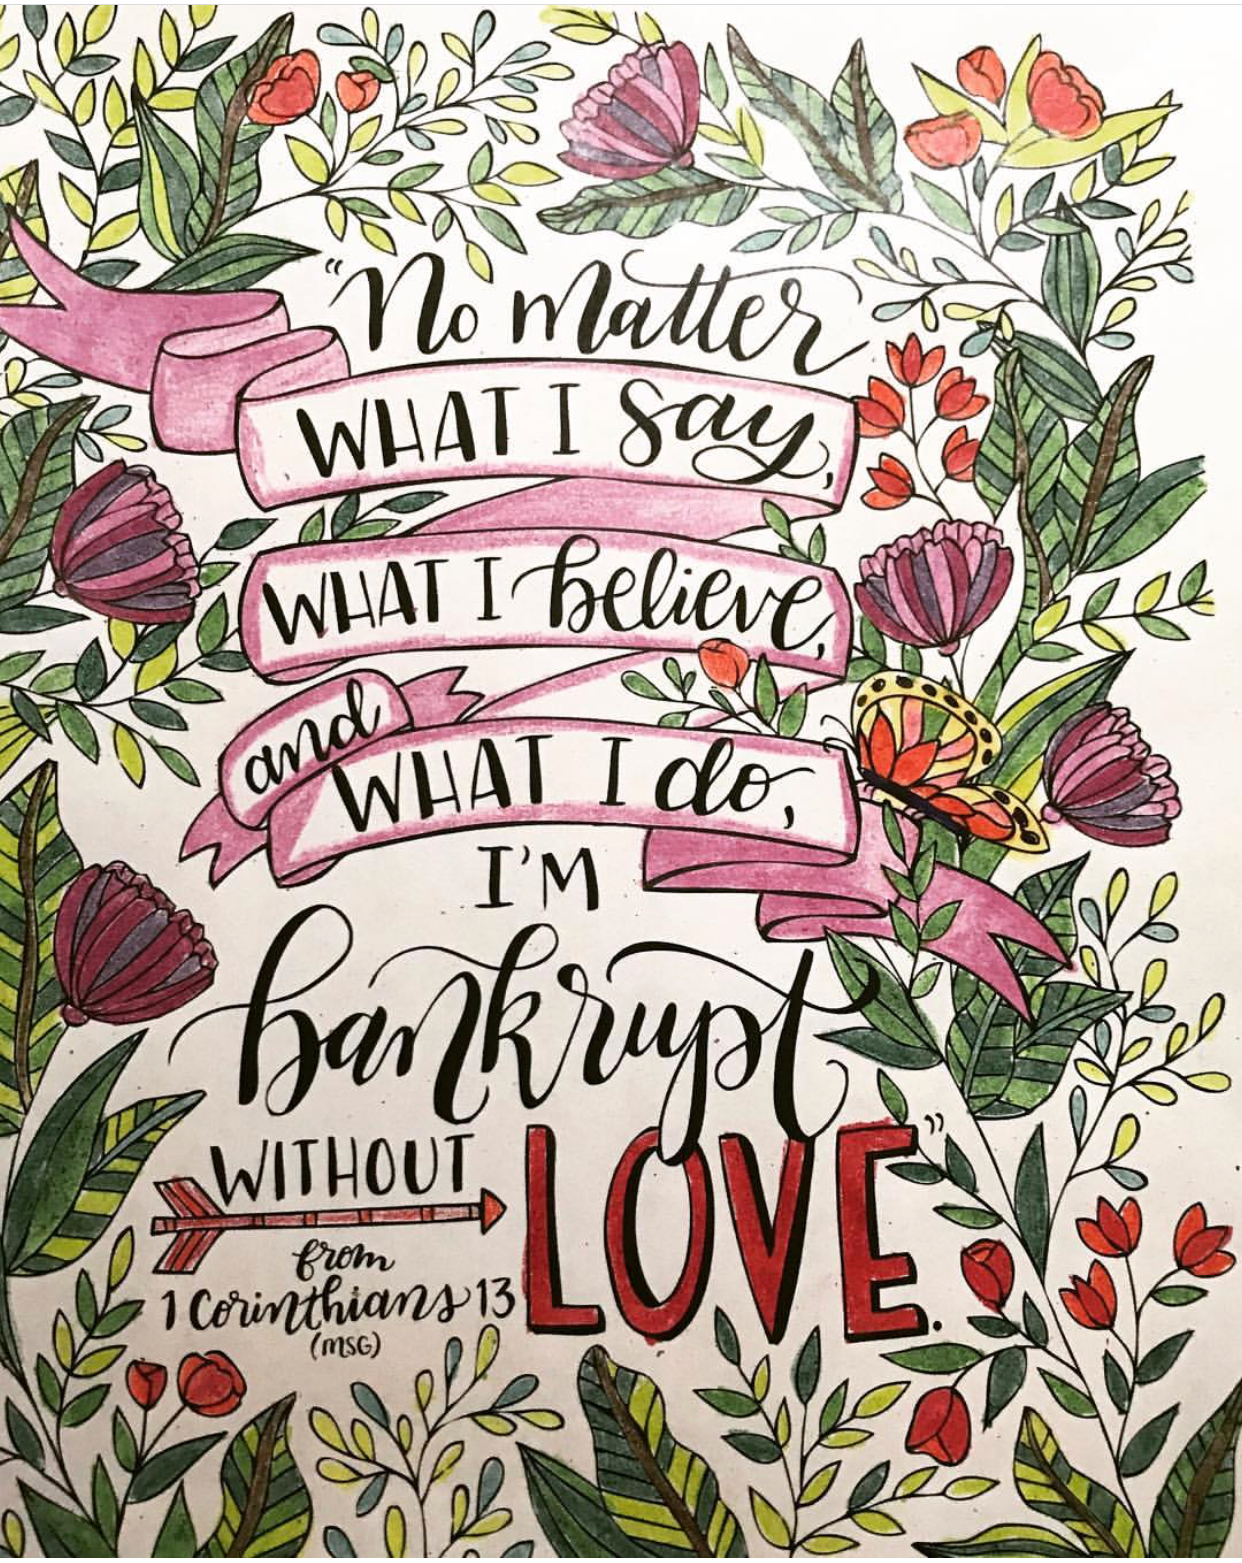 "No matter
WHAT I say,
WHAT I believe,
and
WHAT I do,
I'M
bankrupt
WITHOUT
LOVE."
from
1 Corinthians 13
(MSG)